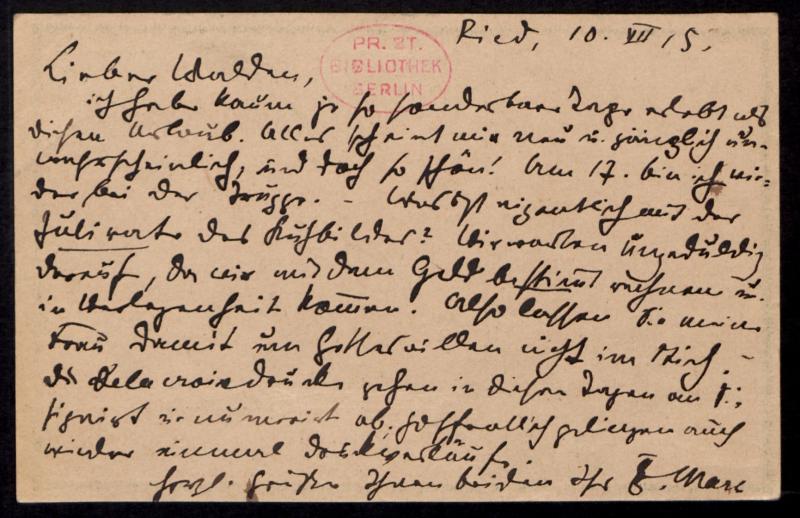 Ried, 10. VII 15.
PR. ST.
BIBLIOTHEK
BERLIN
Lieber Walden,
ich habe kaum je so sonderbare Tage erlebt als
diesen Urlaub. Alles scheint mir neu u. gänzlich un-
wahrscheinlich, und doch so schön! Am 17. bin ich wie-
der bei der Truppe. – Was ist eigentlich mit der
Julirate des Kuhbildes? Wir warten ungeduldig
darauf, da wir mit dem Geld bestimmt rechnen u.
in Verlegenheit kommen. Also lassen Sie meine
Frau damit um Gotteswillen nicht im Stich. –
die Delacroixdrucke gehen in diesen Tagen an Sie,
signirt u numerirt ab. hoffentlich gelingen auch
wieder einmal
herzl. Grüße Ihnen beiden Ihr F. Marc